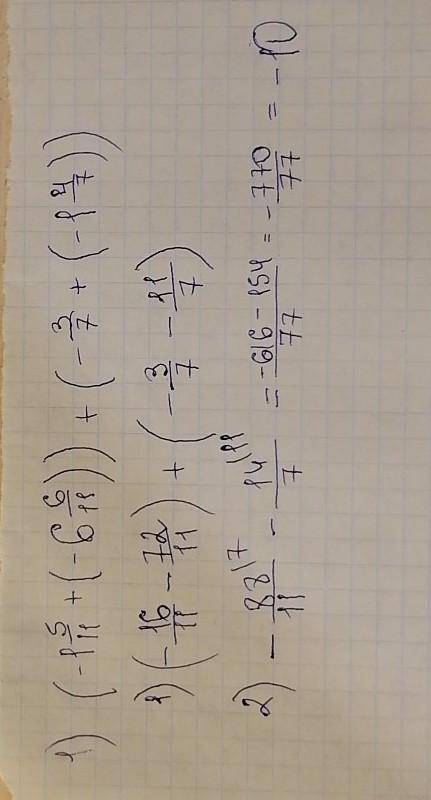 1) (-1 5/11 + (-6 6/11)) + (-3/7 + (-1 4/7))
1) (-16/11 - 72/11) + (-3/7 - 11/7)
2) - 88/11 \7 - 14/7 \11 = -616-154/77 = -770/77 = -10